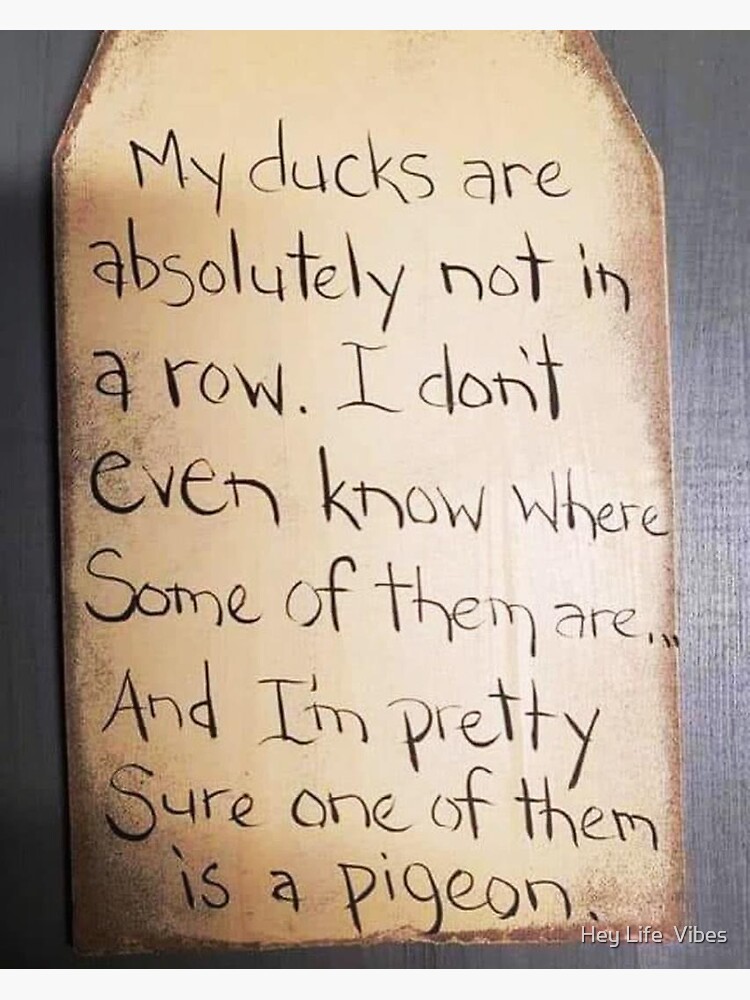 My ducks are
absolutely not in
a row. I don't
even know where
Some of them are...
And I'm pretty
Sure one of them
is a pigeon.
Hey Life Vibes